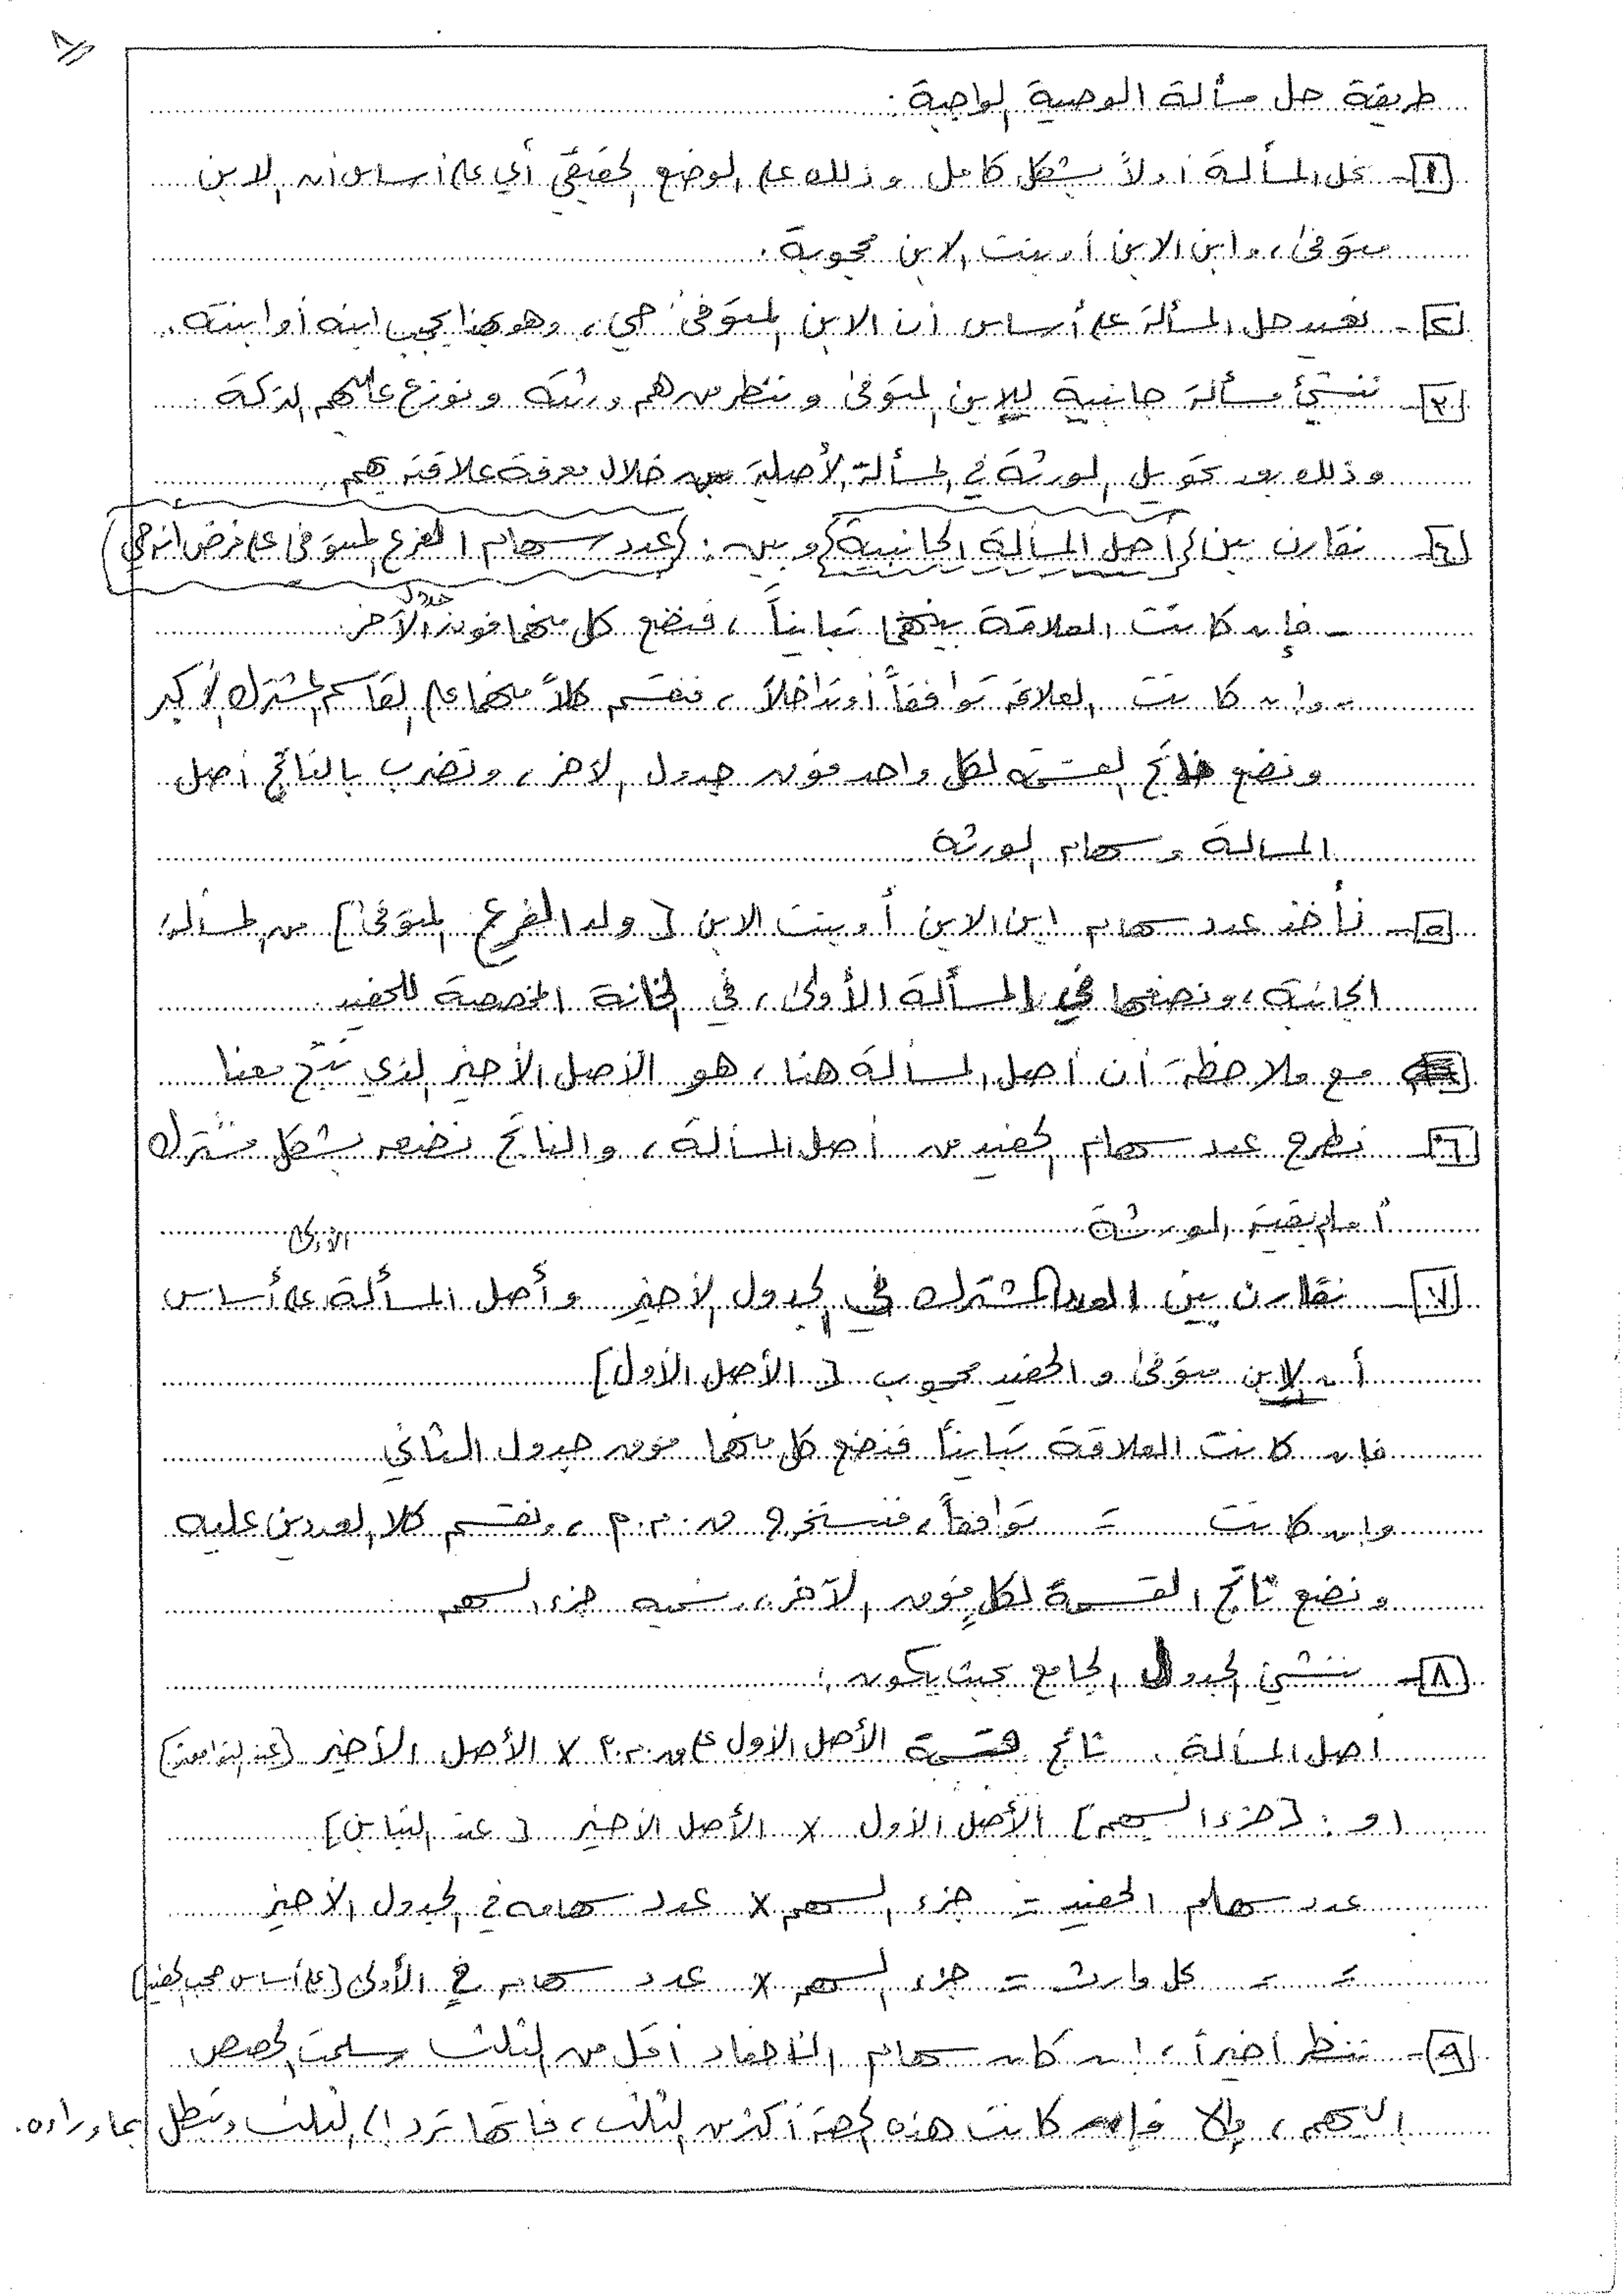 ٨
طريقة حل مسألة الوصية الواجبة :
١- نحل المسألة أولاً بشكل كامل وذلك على الوضع الحقيقي أي على أساس أن الابن
متوفى، وابن الابن أو بنت الابن محجوبة .
٢- نعيد حل المسألة على أساس أن الابن المتوفى حي، وهو هنا يحجب ابنه أو ابنته.
٣- ننشئ مسألة جانبية للابن المتوفى وننظر من هم ورثته ونوزع عليهم التركة
وذلك بعد تحويل الورثة في المسألة الأصلية من خلال معرفة علاقته بهم
٤- نقارن بين (أصل المسألة الجانبية) وبين : (عدد سهام الفرع المتوفى على فرض أنه حي)
- فإن كانت العلاقة بينهما تبايناً، فنضع كل منهما فوق جدول الآخر
- وإن كانت العلاقة توافقاً أو تداخلاً، فنقسم كلاً منهما على القاسم المشترك الأكبر
ونضع ناتج القسمة لكل واحد فوق جدول الآخر، ونضرب بالناتج أصل
المسالة وسهام الورثة
٥- نأخذ عدد سهام ابن الابن أو بنت الابن [ولد الفرع المتوفى] من المسألة
الجانبية، ونضعها في المسألة الأولى، في الخانة المخصصة للحفيد
مع ملاحظة أن أصل المسألة هنا، هو الأصل الأخير الذي نتج معنا
٦- نطرح عدد سهام الحفيد من أصل المسألة، والناتج نضعه بشكل مشترك
أمام بقية الورثة
٧- نقارن بين العدد المشترك في الجدول الأخير وأصل المسألة الأولى على أساس
أن الابن متوفى والحفيد محجوب [الأصل الأول]
فإن كانت العلاقة تبايناً فنضع كل منهما فوق جدول الثاني
وإن كانت = توافقاً، فنستخرج ق.م.م، ونقسم كلا العددين عليه
ونضع ناتج القسمة لكلٍ فوق الآخر، ونسميه جزء السهم
٨- ننشئ الجدول الجامع بحيث يكون :
أصل المسألة ناتج قسمة الأصل الأول على ق.م.م × الأصل الأخير (عند التوافق)
أو : [جزء السهم] الأصل الأول × الأصل الأخير [عند التباين]
عدد سهام الحفيد = جزء السهم × عدد سهامه في الجدول الأخير
= = كل وارث = جزء السهم × عدد سهامه في الأولى (على أساس حجب الحفيد)
٩- ننظر أخيراً، إن كان سهام الأحفاد أقل من الثلث سلمت الحصص
إليهم، وإلا فإن كانت هذه الحصة أكثر من الثلث، فإنها ترد إلى الثلث وتبطل بما وراءه.